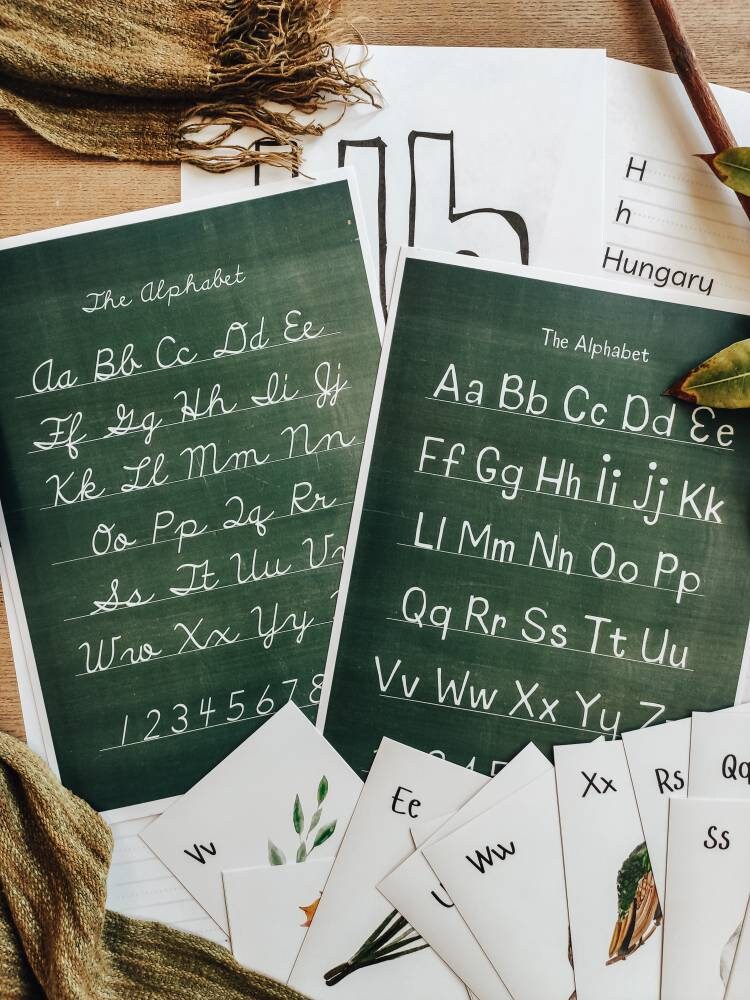 h
H
h
Hungary
The Alphabet
Aa Bb Cc Dd Ee
Ff Gg Hh Ii Jj
Kk Ll Mm Nn
Oo Pp Qq Rr
Ss Tt Uu Vv
Ww Xx Yy
12345678
The Alphabet
Aa Bb Cc Dd Ee
Ff Gg Hh Ii Jj Kk
Ll Mm Nn Oo Pp
Qq Rr Ss Tt Uu
Vv Ww Xx Yy Z
Vv
Ee
U
Ww
Xx
Rs
Qq
Ss